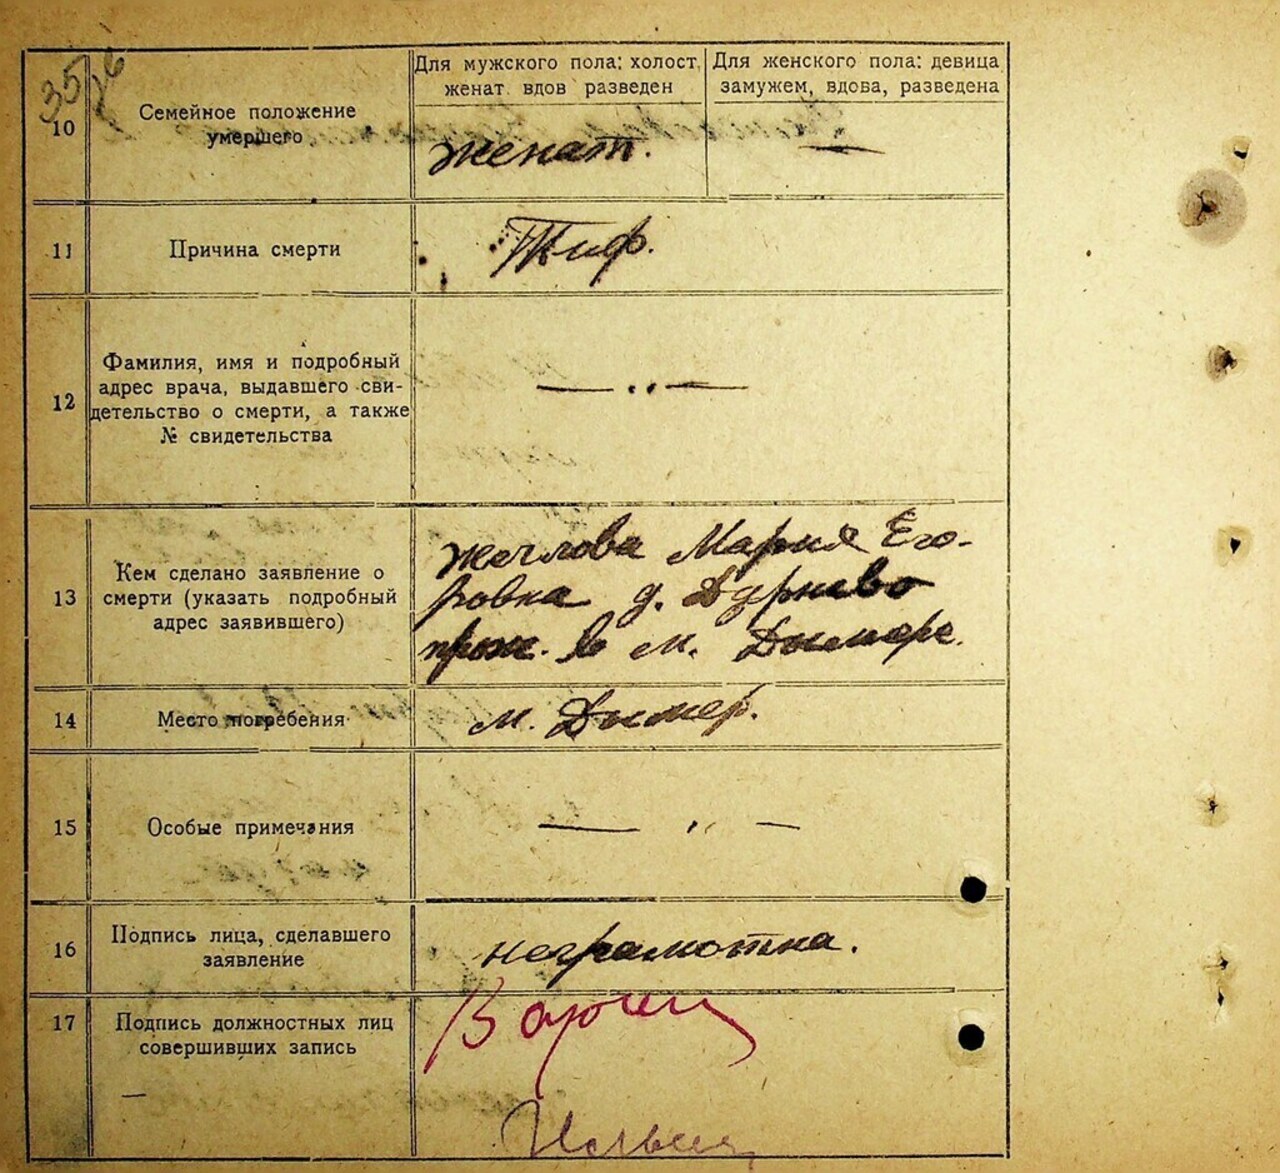 35
10
Семейное положение
умершего
Для мужского пола: холост
женат вдов разведен
Для женского пола: девица
замужем, вдова, разведена
женат.
—
11
Причина смерти
Тиф.
12
Фамилия, имя и подробный
адрес врача, выдавшего сви-
детельство о смерти, а также
№ свидетельства
— „ —
13
Кем сделано заявление о
смерти (указать подробный
адрес заявившего)
Мария Его-
ровна д. Дурнево
прож. в м. Дымере.
14
Место погребения
м. Дымер.
15
Особые примечания
— „ —
16
Подпись лица, сделавшего
заявление
неграмотна.
17
Подпись должностных лиц
совершивших запись